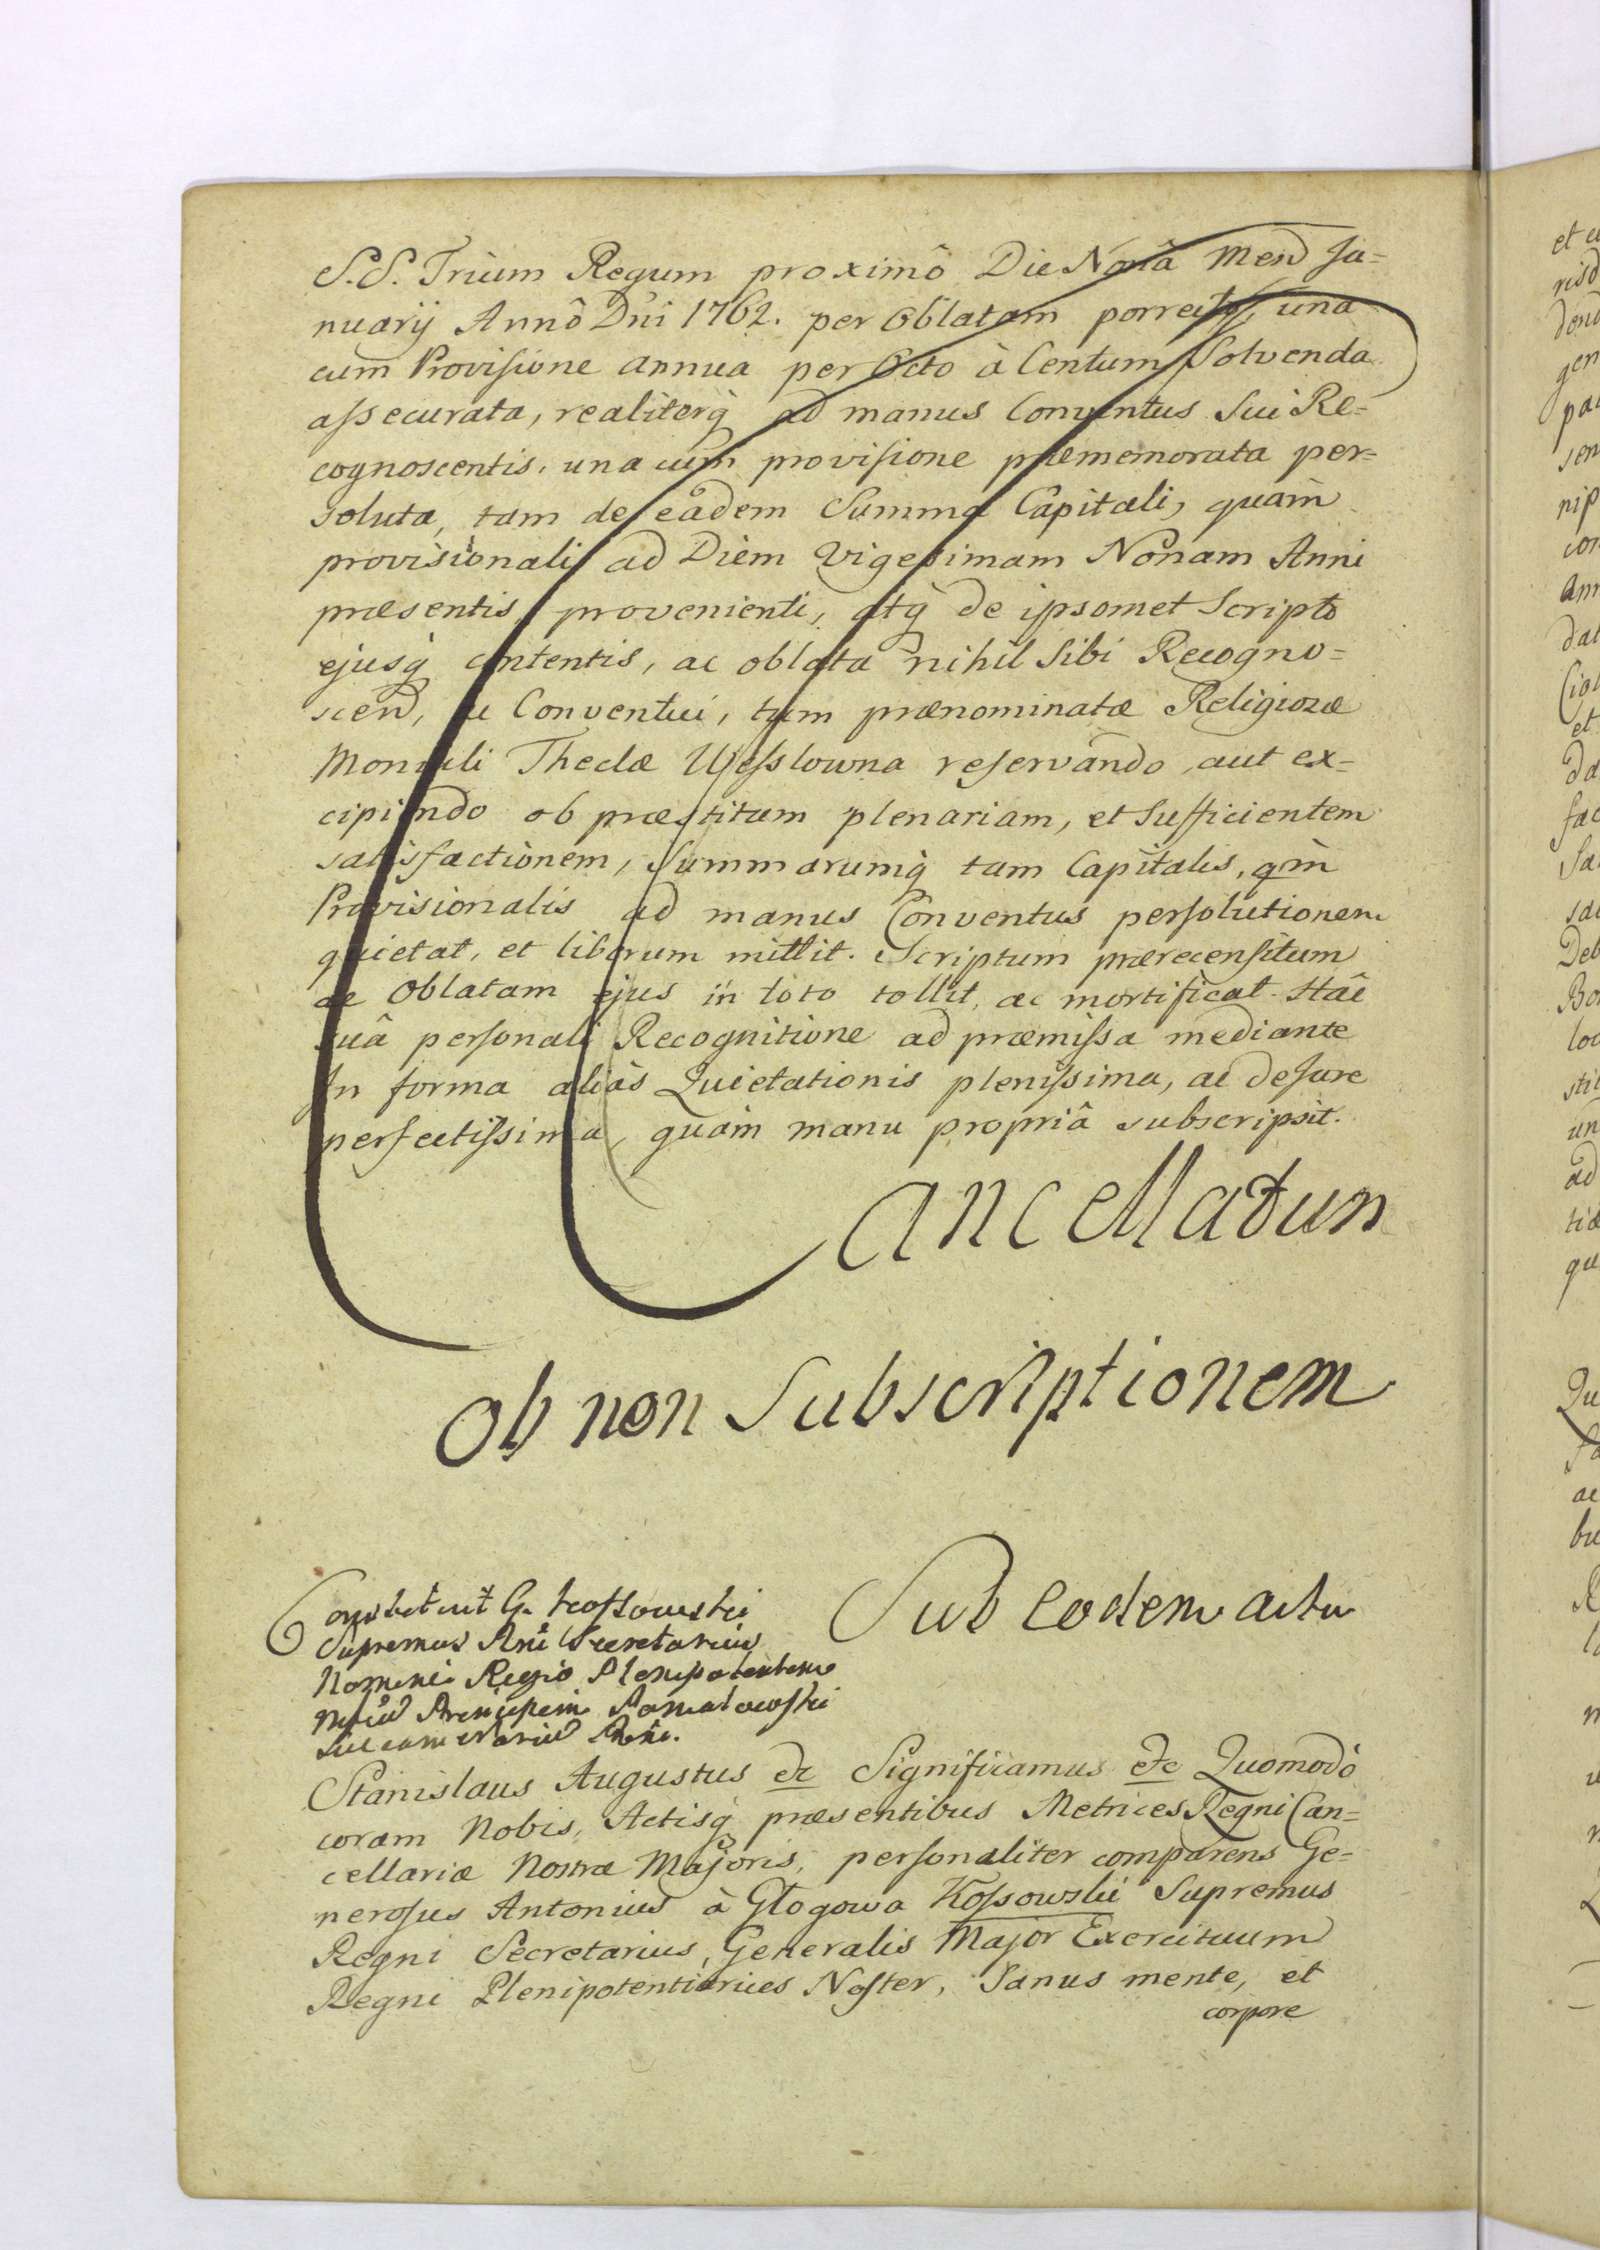 S.S. Trium Regum proximô Die Nonâ Mens Ja=
nuarij Annô Dni 1762. per Oblatam porrecto, una
cum Provisione annua per Octo à Centum Solvenda
assecurata, realiterq ad manus Conventus Sui Re=
cognoscentis, una cum provisione præmemorata per=
soluta, tam de eâdem Summa Capitali, quàm
provisionali ad Diem Vigesimam Nonam Anni
præsentis provenienti, atq de ipsomet Scripto
ejusq contentis, ac oblata nihil Sibi Recogno=
scend, ac Conventui, tum prænominatæ Religiosæ
Moniali Theclæ Wesslowna reservando, aut ex=
cipiendo ob præstitam plenariam, et Sufficientem
satisfactionem, Summarumq tam Capitalis, qm
Provisionalis ad manus Conventus persolutionem
quietat, et liberum mittit. Scriptum prærecensitum
ac Oblatam ejus in toto tollit, ac mortificat. Hâc
suâ personali Recognitione ad præmissa mediante
In forma aliàs Quietationis plenissima, ac de Jure
perfectissima, quàm manu propriâ subscripsit.
Cancellatum
Ob non Subscriptionem
Sub eodem actu
Constituit G. Kossowski
Supremus Secretarius
Nomine Regio Plenipotentem
Principem Poniatowski
Succamerariu
Stanislaus Augustus etc Significamus etc Quomodò
coram Nobis, Actisq præsentibus Metrices Regni Can=
cellariæ Nostræ Majoris, personaliter comparens Ge=
nerosus Antonius à Głogowa Kossowski Supremus
Regni Secretarius, Generalis Major Exercituum
Regni Plenipotentiarius Noster, Sanus mente, et
corpore